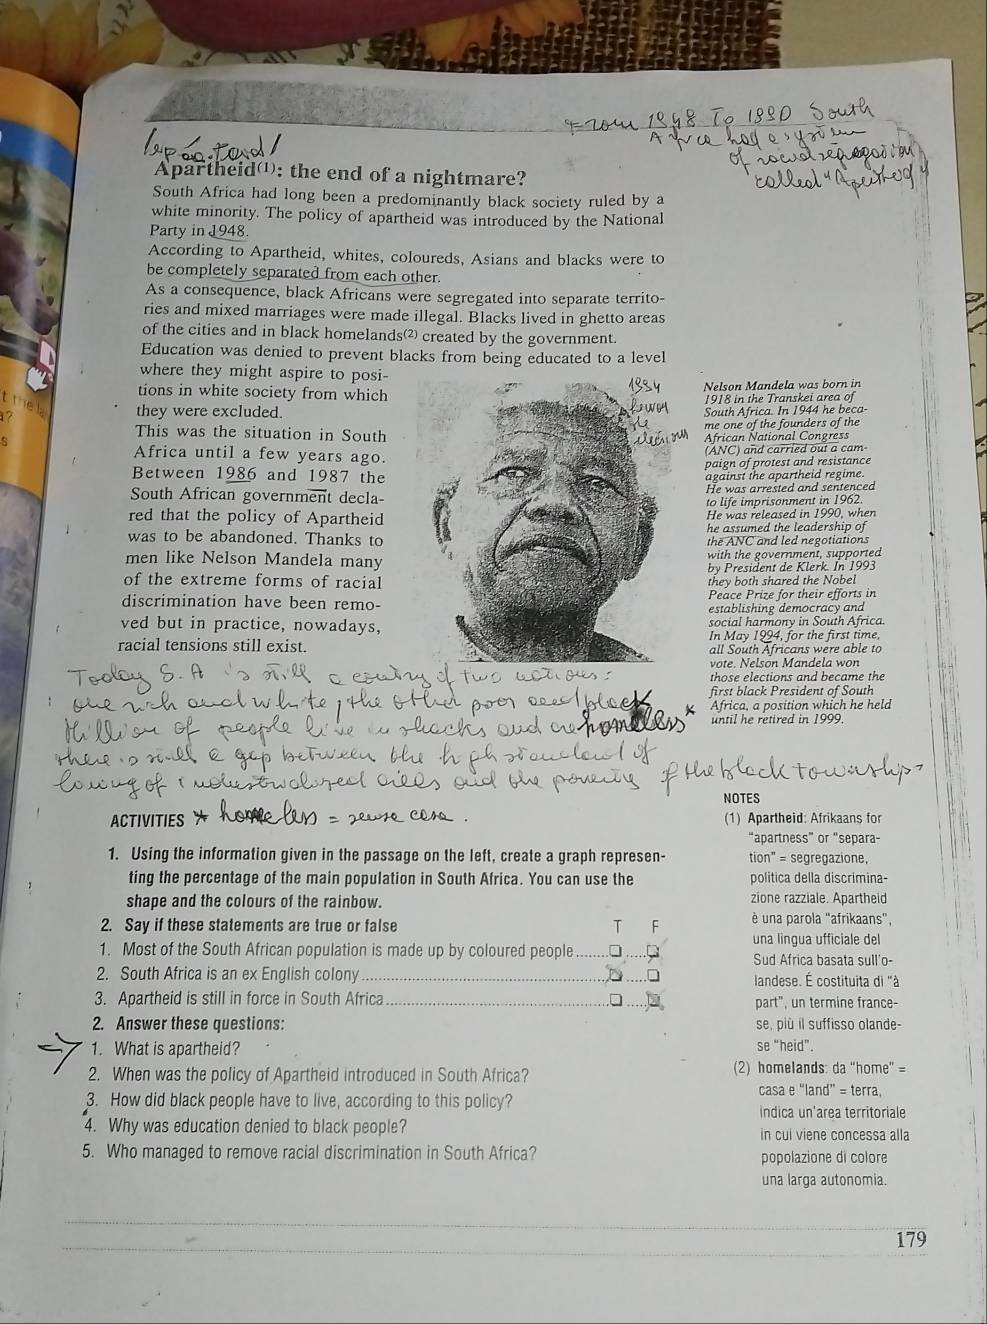 From 1948 To 1990 South
Africa had a system
of social segregation
called "Apartheid"
Apartheid(1): the end of a nightmare?
South Africa had long been a predominantly black society ruled by a
white minority. The policy of apartheid was introduced by the National
Party in 1948.
According to Apartheid, whites, coloureds, Asians and blacks were to
be completely separated from each other.
As a consequence, black Africans were segregated into separate territo-
ries and mixed marriages were made illegal. Blacks lived in ghetto areas
of the cities and in black homelands(2) created by the government.
Education was denied to prevent blacks from being educated to a level
where they might aspire to posi-
tions in white society from which
they were excluded.
This was the situation in South
Africa until a few years ago.
Between 1986 and 1987 the
South African government decla-
red that the policy of Apartheid
was to be abandoned. Thanks to
men like Nelson Mandela many
of the extreme forms of racial
discrimination have been remo-
ved but in practice, nowadays,
racial tensions still exist.
1994
Nelson Mandela was born in
1918 in the Transkei area of
South Africa. In 1944 he beca-
me one of the founders of the
African National Congress
(ANC) and carried out a cam-
paign of protest and resistance
against the apartheid regime.
He was arrested and sentenced
to life imprisonment in 1962.
He was released in 1990, when
he assumed the leadership of
the ANC and led negotiations
with the government, supported
by President de Klerk. In 1993
they both shared the Nobel
Peace Prize for their efforts in
establishing democracy and
social harmony in South Africa.
In May 1994, for the first time,
all South Africans were able to
vote. Nelson Mandela won
those elections and became the
first black President of South
Africa, a position which he held
until he retired in 1999.
Today S.A is still a country of two nations:
one rich and white, the other poor and black
Million of people live in shacks and are homeless*
there is still a gap between the high standard of
living of industrialized cities and the poverty of the black townships
ACTIVITIES * homeless = senza casa.
1. Using the information given in the passage on the left, create a graph represen-
ting the percentage of the main population in South Africa. You can use the
shape and the colours of the rainbow.
2. Say if these statements are true or false T F
1. Most of the South African population is made up by coloured people
2. South Africa is an ex English colony
3. Apartheid is still in force in South Africa
2. Answer these questions:
1. What is apartheid?
2. When was the policy of Apartheid introduced in South Africa?
3. How did black people have to live, according to this policy?
4. Why was education denied to black people?
5. Who managed to remove racial discrimination in South Africa?
NOTES
(1) Apartheid: Afrikaans for
"apartness" or "separa-
tion" = segregazione,
politica della discrimina-
zione razziale. Apartheid
è una parola "afrikaans",
una lingua ufficiale del
Sud Africa basata sull'o-
landese. É costituita di "à
part", un termine france-
se, più il suffisso olande-
se "heid".
(2) homelands: da "home" =
casa e "land" = terra,
indica un'area territoriale
in cui viene concessa alla
popolazione di colore
una larga autonomia.
179